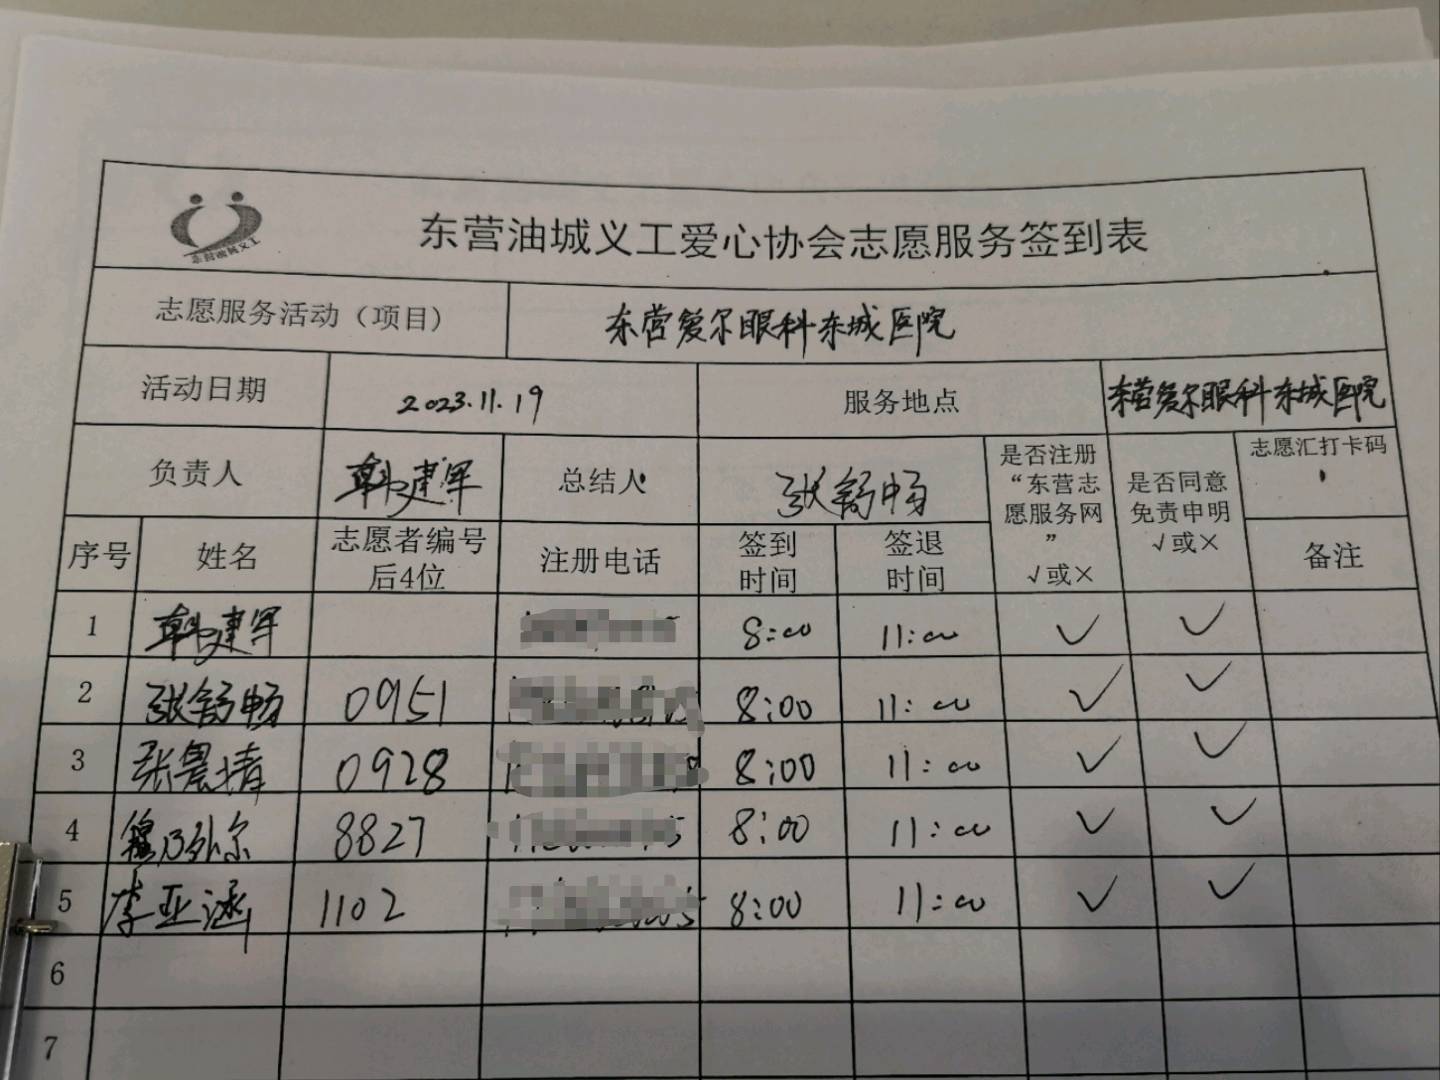 东营油城义工
东营油城义工爱心协会志愿服务签到表
志愿服务活动（项目） 东营爱尔眼科东城医院
活动日期 2023.11.19 服务地点 东营爱尔眼科东城医院
负责人 韩建军 总结人 张舒畅 是否注册“东营志愿服务网”√或× 是否同意免责申明√或× 志愿汇打卡码
序号 姓名 志愿者编号后4位 注册电话 签到时间 签退时间 备注
1 韩建军 8:00 11:00 ✓ ✓
2 张舒畅 0951 8:00 11:00 ✓ ✓
3 张晨婧 0928 8:00 11:00 ✓ ✓
4 穆乃外尔 8827 8:00 11:00 ✓ ✓
5 李亚涵 1102 8:00 11:00 ✓ ✓
6
7